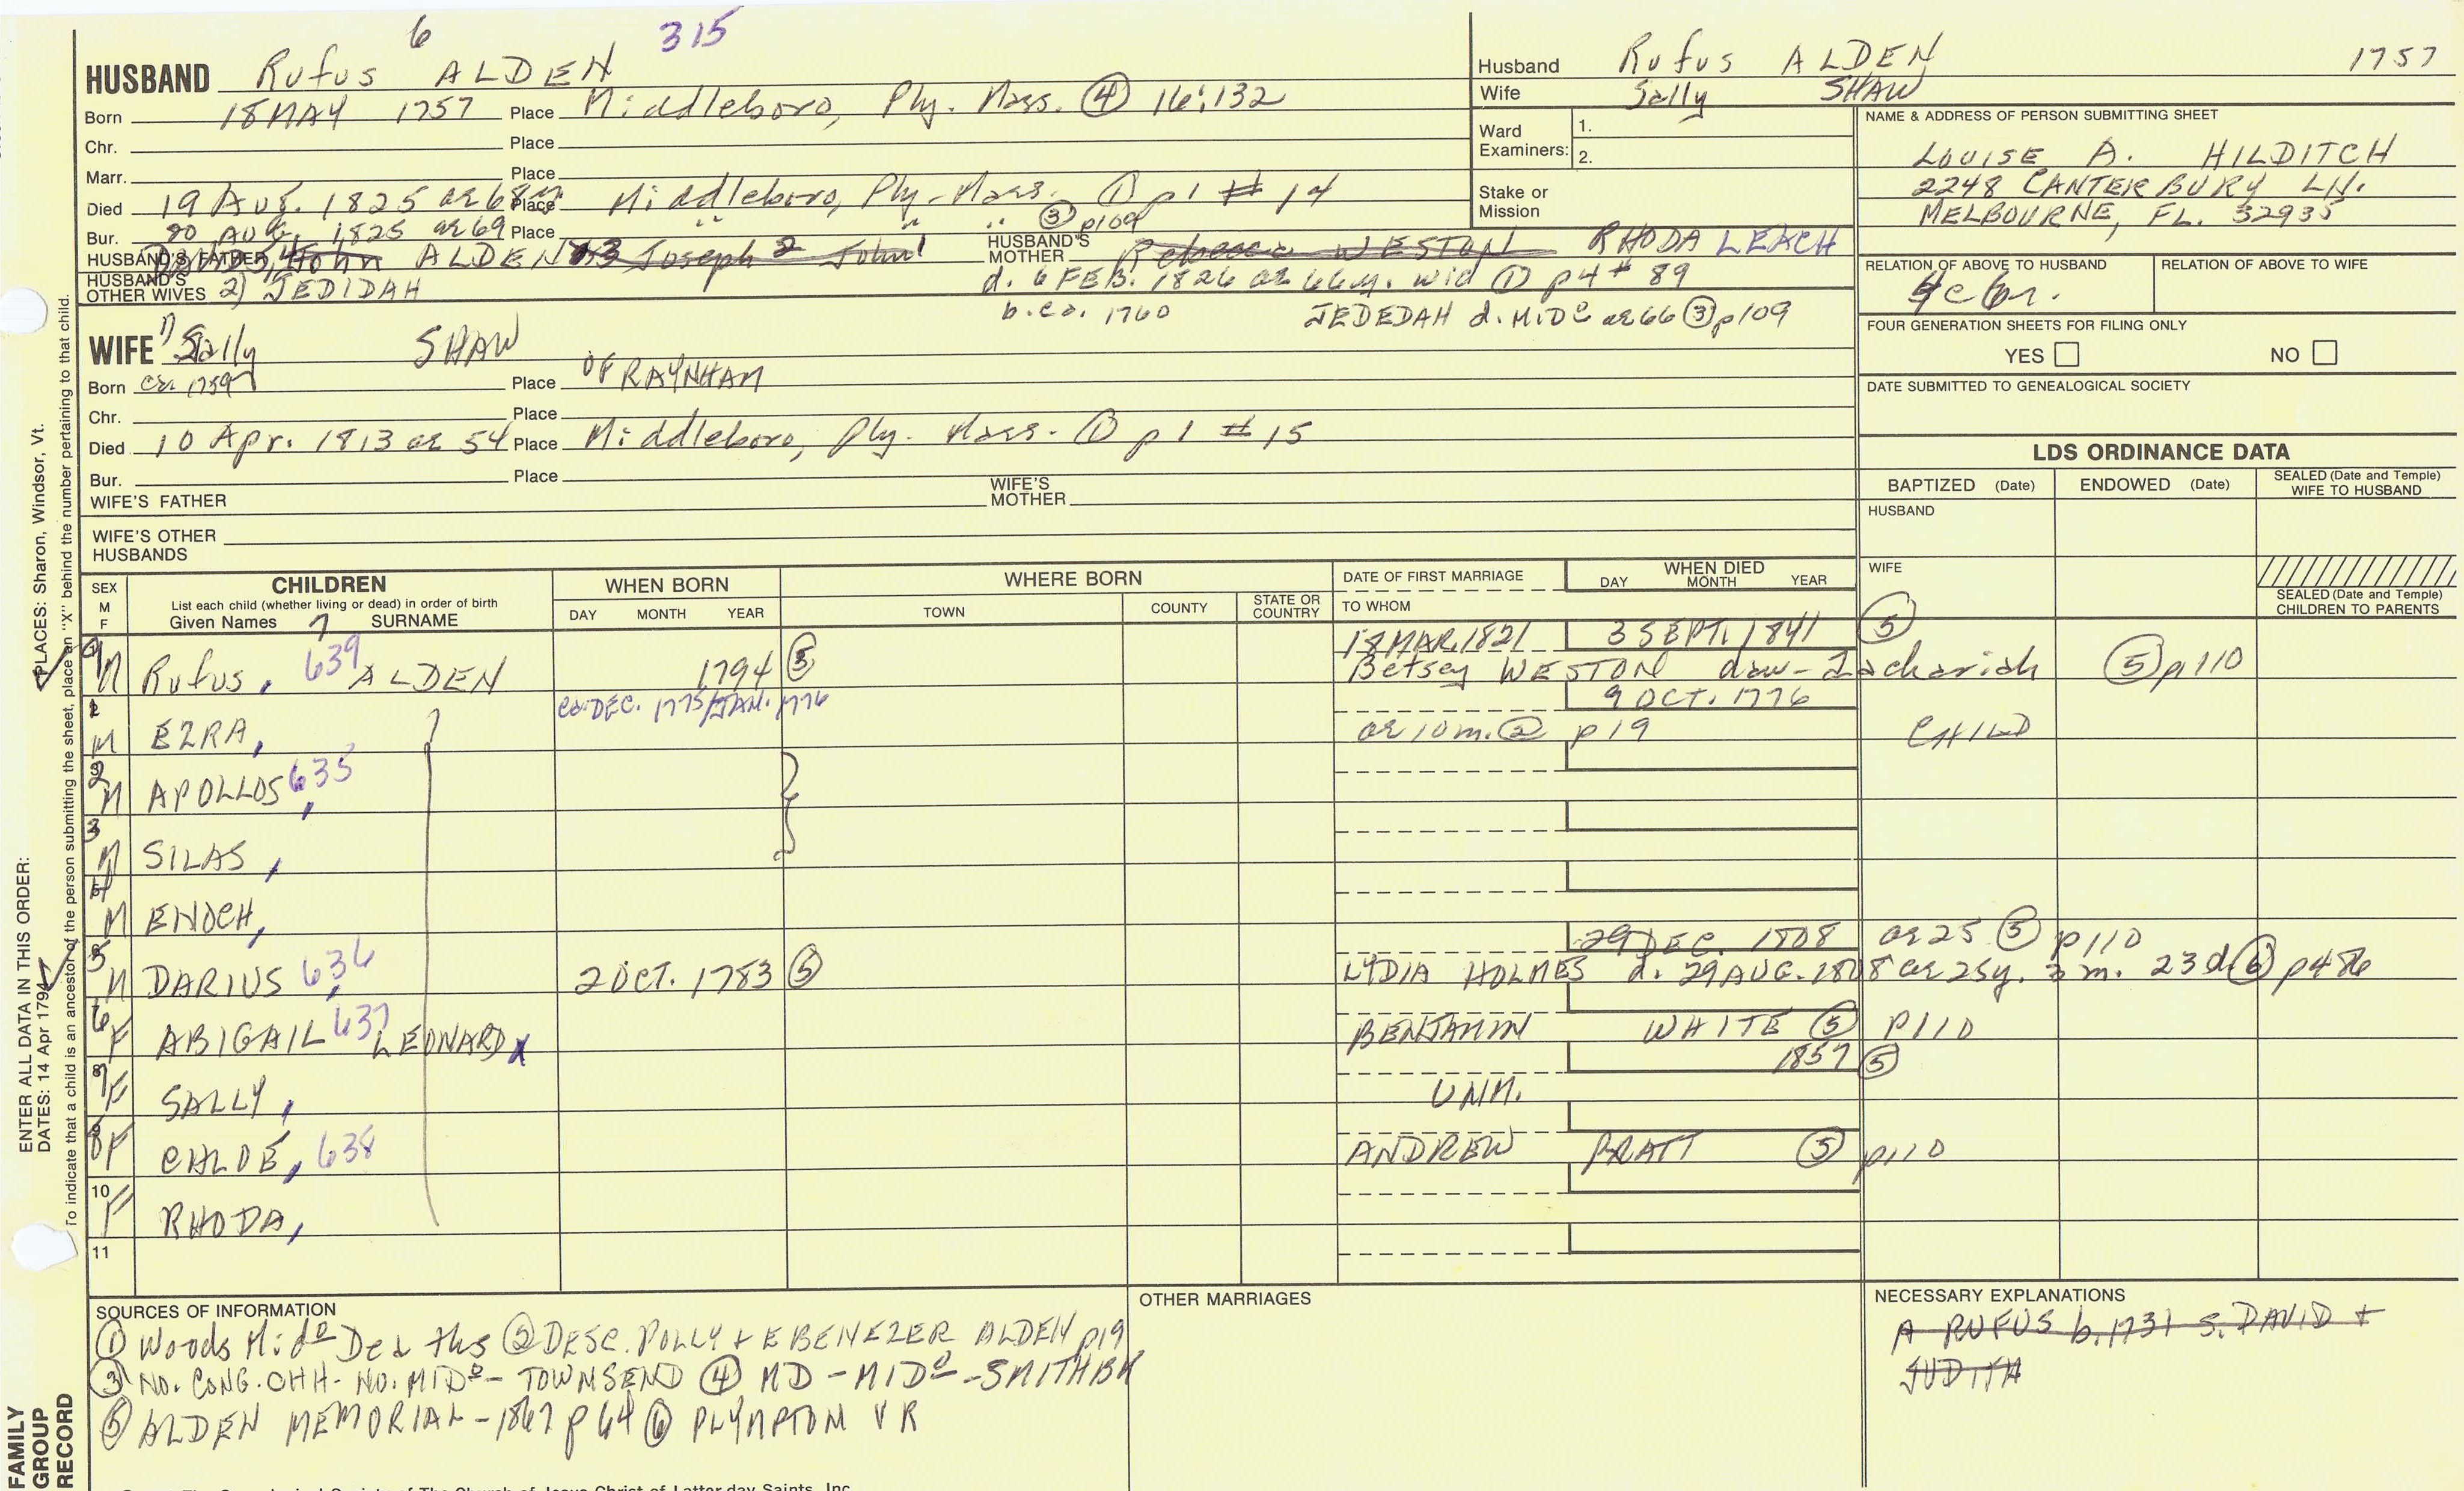 6 315
HUSBAND Rufus ALDEN
Born 18 MAY 1757 Place Middleboro, Ply. Mass. ④ 16:132
Chr. Place
Marr. Place
Died 19 Aug. 1825 ae 68 Place Middleboro, Ply-Mass. ① p1 # 14
Bur. 20 AUG. 1825 ae 69 Place " " " ③ p109
HUSBAND'S FATHER David 4 John ALDEN 3 Joseph 2 John 1 HUSBAND'S MOTHER Rebecca WESTON RHODA LEACH
HUSBAND'S OTHER WIVES 2) JEDIDAH d. 6 FEB. 1826 ae 66y. wid ① p4 # 89
b. ca. 1760 JEDEDAH d. MIDo ae 66 ③ p109
WIFE 1) Sally SHAW
Born ca. 1759 Place OF RAYNHAM
Chr. Place
Died 10 Apr. 1813 ae 54 Place Middleboro, Ply. Mass. ① p1 # 15
Bur. Place
WIFE'S FATHER WIFE'S MOTHER
WIFE'S OTHER HUSBANDS
Husband Rufus ALDEN 1757
Wife Sally SHAW
Ward Examiners: 1. 2.
Stake or Mission
NAME & ADDRESS OF PERSON SUBMITTING SHEET
LOUISE A. HILDITCH
2248 CANTERBURY LN.
MELBOURNE, FL. 32935
RELATION OF ABOVE TO HUSBAND RELATION OF ABOVE TO WIFE
FOUR GENERATION SHEETS FOR FILING ONLY
YES NO
DATE SUBMITTED TO GENEALOGICAL SOCIETY
LDS ORDINANCE DATA
BAPTIZED (Date) ENDOWED (Date) SEALED (Date and Temple) WIFE TO HUSBAND
HUSBAND
WIFE
SEALED (Date and Temple) CHILDREN TO PARENTS
SEX M F CHILDREN WHEN BORN WHERE BORN DATE OF FIRST MARRIAGE WHEN DIED
List each child (whether living or dead) in order of birth
Given Names 7 SURNAME DAY MONTH YEAR TOWN COUNTY STATE OR COUNTRY TO WHOM DAY MONTH YEAR
18 MAR. 1821 3 SEPT. 1841 ⑤
M Rufus, 639 ALDEN 1794 ⑤ Betsey WESTON dau-Zachariah ⑤ p110
ca. DEC. 1775/JAN. 1776 9 OCT. 1776
M EZRA, ae 10 m. ② p19 CHILD
2 M APOLLOS, 635
3 M SILAS,
4 M ENOCH,
29 DEC. 1808 ae 25 ⑤ p110
5 M DARIUS, 636 2 OCT. 1783 ⑤ LYDIA HOLMES d. 29 AUG. 1808 ae 25y. 3 m. 23 d ⑥ p486
6 F ABIGAIL 637 LEONARD BENJAMIN WHITE ⑤ p110
1857 ⑤
7 F SALLY, UNM.
8 F CHLOE, 638 ANDREW PRATT ⑤ p110
10 F RHODA,
11
SOURCES OF INFORMATION
① Woods Mido Deaths ② DESC. POLLY + EBENEZER ALDEN p19
③ NO. CONG. CHH- NO. MIDo- TOWNSEND ④ MD -MIDo -SMITH BK
⑤ ALDEN MEMORIAL - 1867 p64 ⑥ PLYMPTON VR
OTHER MARRIAGES
NECESSARY EXPLANATIONS
A RUFUS b. 1731 s. DAVID +
JUDITH
ENTER ALL DATA IN THIS ORDER:
DATES: 14 Apr 1794 PLACES: Sharon, Windsor, Vt.
To indicate that a child is an ancestor of the person submitting the sheet, place an "X" behind the number pertaining to that child.
FAMILY GROUP RECORD
The Genealogical Society of The Church of Jesus Christ of Latter-day Saints, Inc.